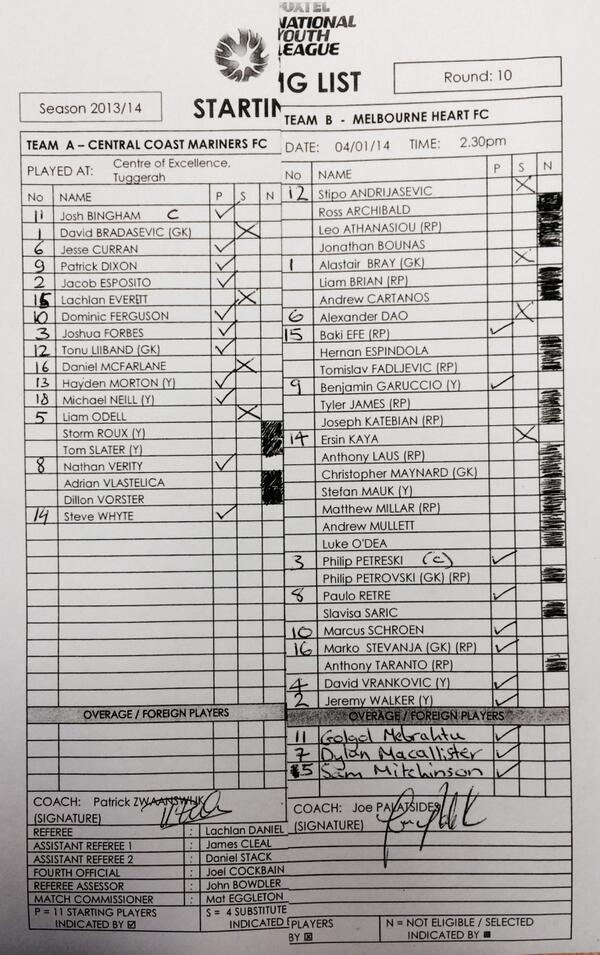 FOXTEL
NATIONAL
YOUTH
LEAGUE
STARTIN
IG LIST
Round: 10
Season 2013/14
TEAM A – CENTRAL COAST MARINERS FC
PLAYED AT: Centre of Excellence, Tuggerah
No NAME P S N
11 Josh BINGHAM C ✓
1 David BRADASEVIC (GK) X
6 Jesse CURRAN ✓
9 Patrick DIXON ✓
2 Jacob ESPOSITO ✓
15 Lachlan EVERETT X
10 Dominic FERGUSON ✓
3 Joshua FORBES ✓
12 Tonu LIIBAND (GK) ✓
16 Daniel MCFARLANE X
13 Hayden MORTON (Y) ✓
18 Michael NEILL (Y) ✓
5 Liam ODELL X
Storm ROUX (Y)
Tom SLATER (Y)
8 Nathan VERITY ✓
Adrian VLASTELICA
Dillon VORSTER
14 Steve WHYTE ✓
OVERAGE / FOREIGN PLAYERS
COACH: Patrick ZWAANSWIJK
(SIGNATURE)
REFEREE : Lachlan DANIEL
ASSISTANT REFEREE 1 : James CLEAL
ASSISTANT REFEREE 2 : Daniel STACK
FOURTH OFFICIAL : Joel COCKBAIN
REFEREE ASSESSOR : John BOWDLER
MATCH COMMISSIONER : Mat EGGLETON
P = 11 STARTING PLAYERS
INDICATED BY ☑
S = 4 SUBSTITUTE
INDICATED
TEAM B - MELBOURNE HEART FC
DATE: 04/01/14 TIME: 2.30pm
No NAME P S N
12 Stipo ANDRIJASEVIC X
Ross ARCHIBALD
Leo ATHANASIOU (RP)
Jonathan BOUNAS
1 Alastair BRAY (GK) X
Liam BRIAN (RP)
Andrew CARTANOS
6 Alexander DAO X
15 Baki EFE (RP) ✓
Hernan ESPINDOLA
Tomislav FADLJEVIC (RP)
9 Benjamin GARUCCIO (Y) ✓
Tyler JAMES (RP)
Joseph KATEBIAN (RP)
14 Ersin KAYA X
Anthony LAUS (RP)
Christopher MAYNARD (GK)
Stefan MAUK (Y)
Matthew MILLAR (RP)
Andrew MULLETT
Luke O'DEA
3 Philip PETRESKI (C) ✓
Philip PETROVSKI (GK) (RP)
8 Paulo RETRE ✓
Slavisa SARIC
10 Marcus SCHROEN ✓
16 Marko STEVANJA (GK) (RP) ✓
Anthony TARANTO (RP)
4 David VRANKOVIC (Y) ✓
2 Jeremy WALKER (Y) ✓
OVERAGE / FOREIGN PLAYERS
11 Golgol Mebrahtu ✓
7 Dylan Macallister ✓
5 Sam Mitchinson ✓
COACH: Joe PALATSIDES
(SIGNATURE)
PLAYERS
BY ☒
N = NOT ELIGIBLE / SELECTED
INDICATED BY ■